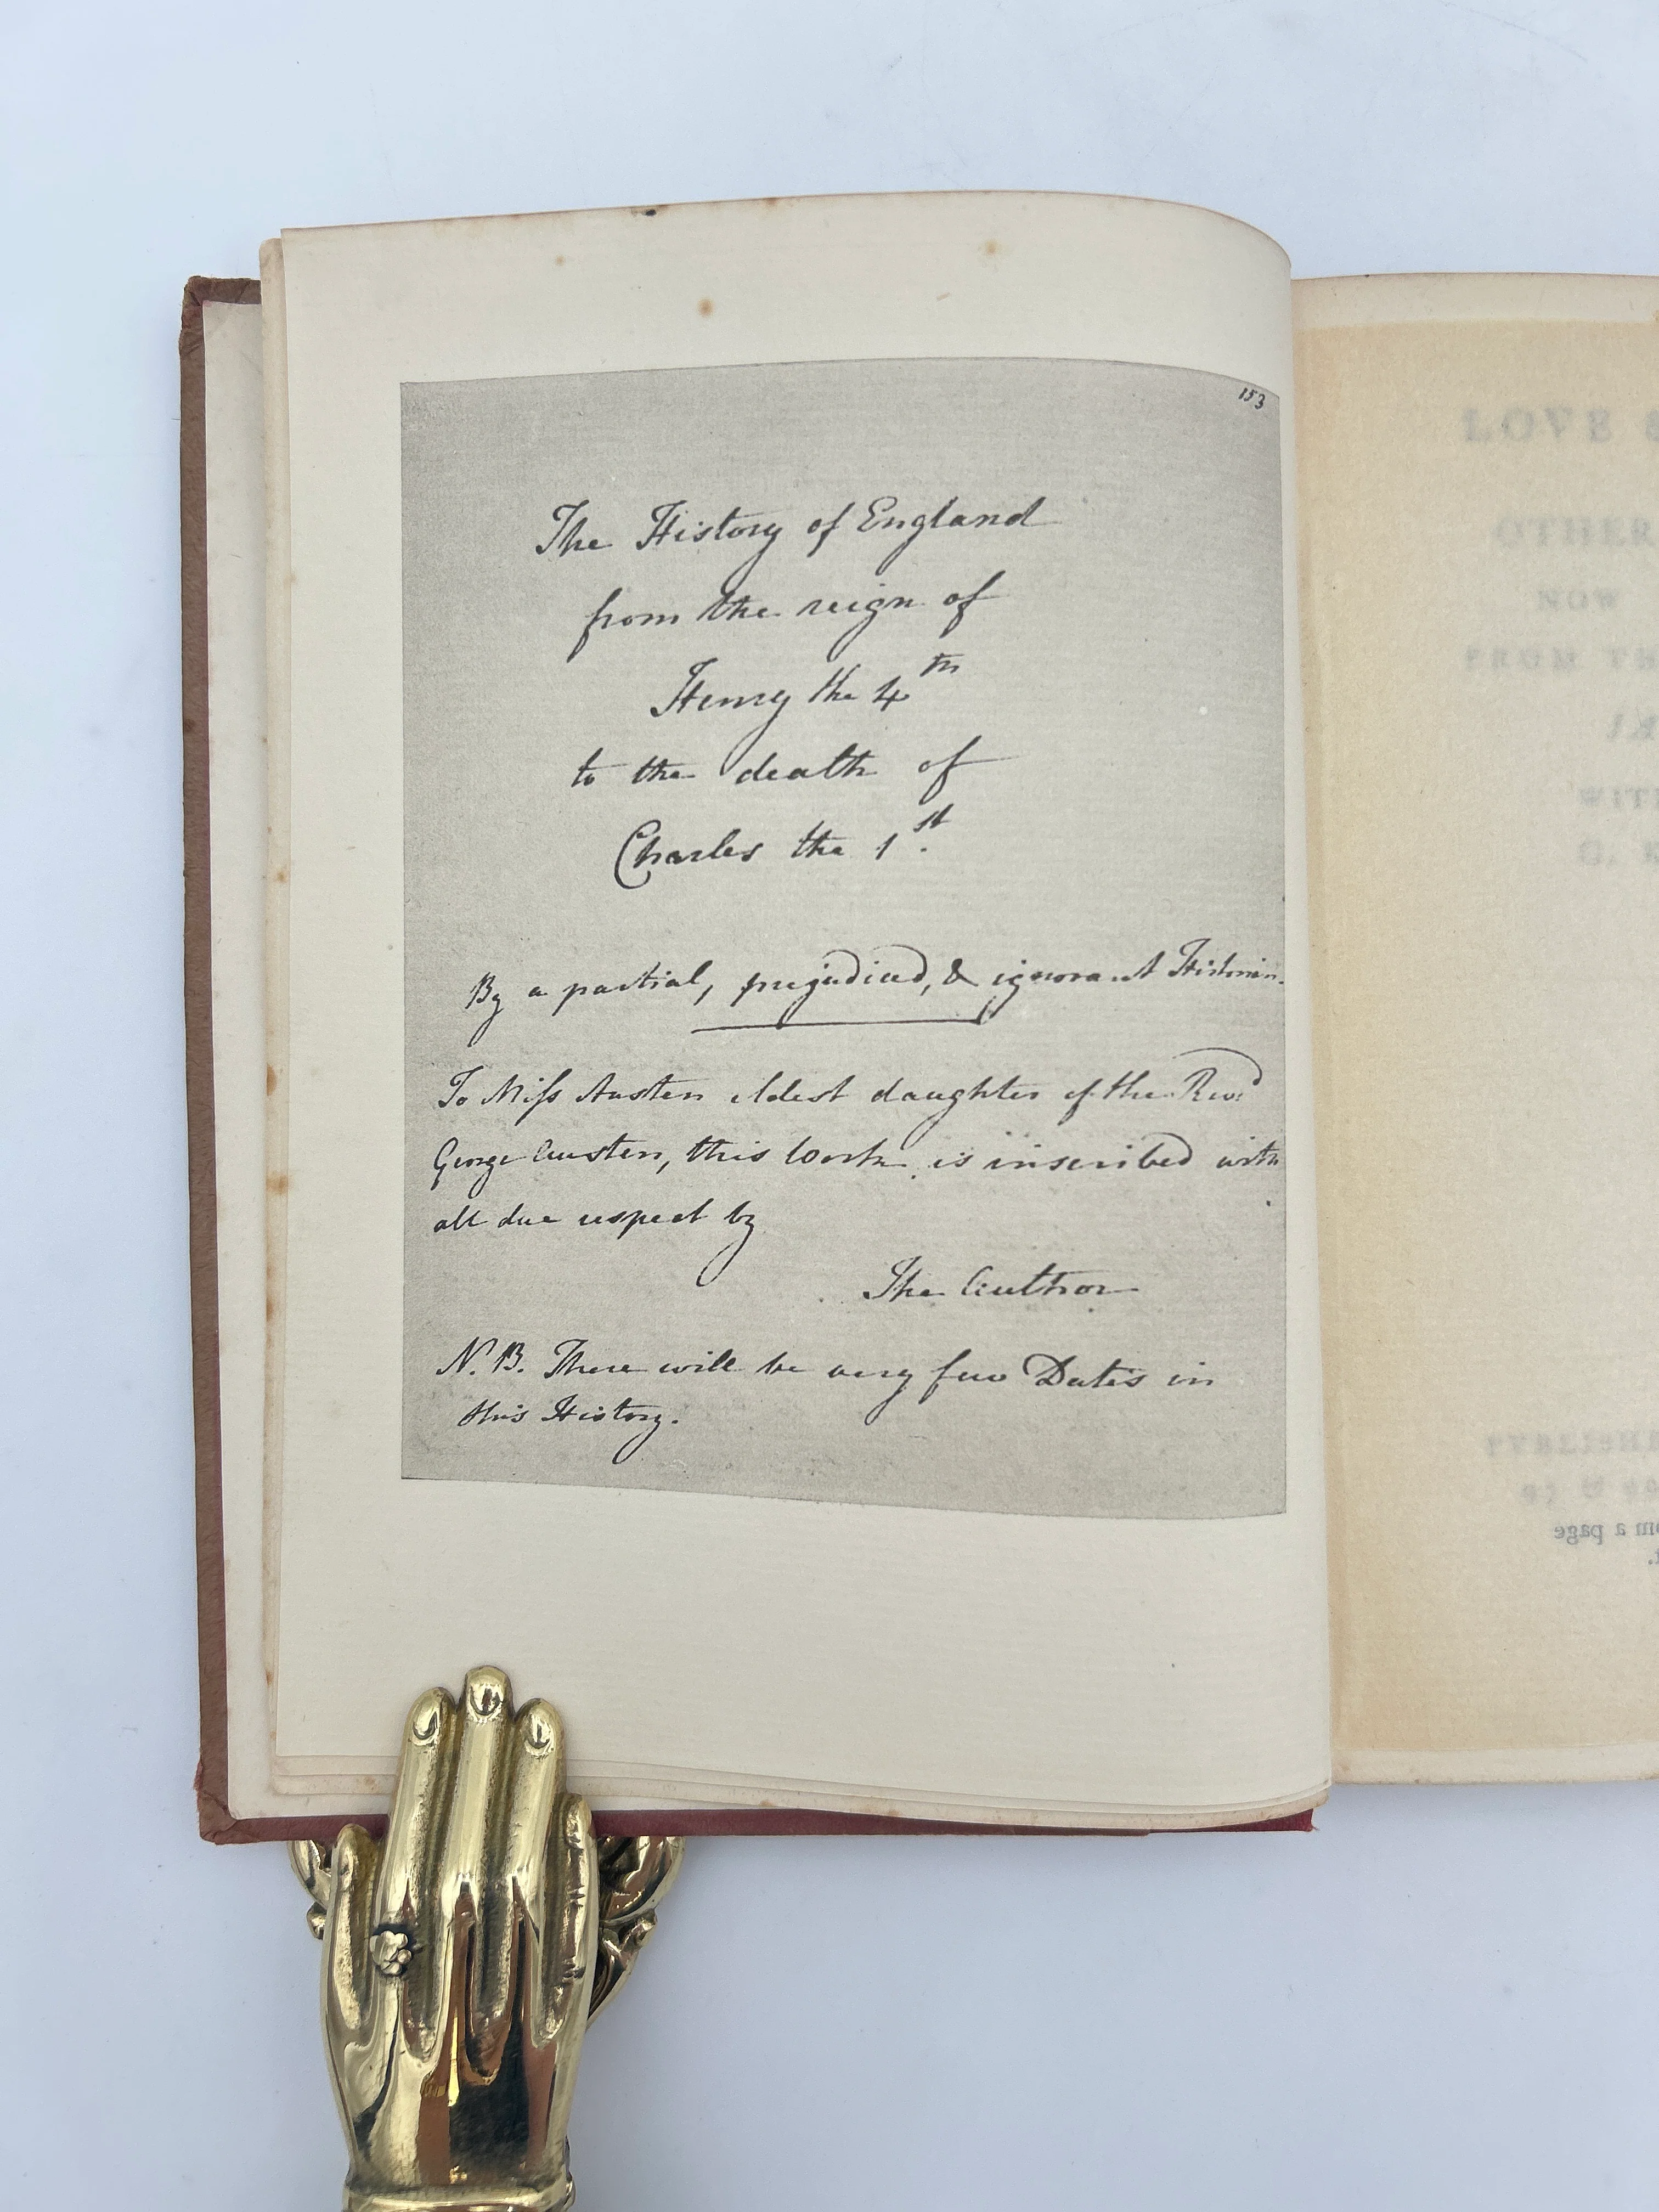 153
The History of England
from the reign of
Henry the 4th
to the death of
Charles the 1st.
By a partial, prejudiced, & ignorant Historian.
To Miss Austen eldest daughter of the Revd
George Austen, this work is inscribed with
all due respect by
The Author
N.B. There will be very few Dates in
this History.
LOVE &
OTHER
NOW
FROM TH
WITH
G. K
PUBLISHE
om a page
t.